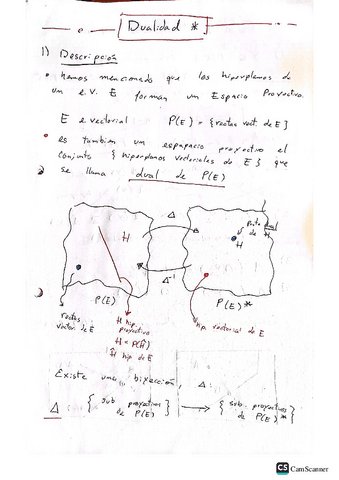 Dualidad *
1) Descripción
• hemos mencionado que los hiperplanos de
un e.v. E forman un Espacio Proyectivo
E e vectorial P(E) = {rectas vect. de E}
• es tambien un espapacio proyectivo el
conjunto { hiperplanos vectoriales de E } que
se llama dual de P(E)
Δ
H
punto dual
de H
H
Δ⁻¹
P(E)
P(E)*
rectas
vector de E
H hip
proyectivo
H = P(Ĥ)
Ĥ hip de E
hip vectorial de E
Existe una biyección, Δ:
Δ { sub proyectivos de P(E) } → { sub. proyectivos de P(E)* }
CS CamScanner